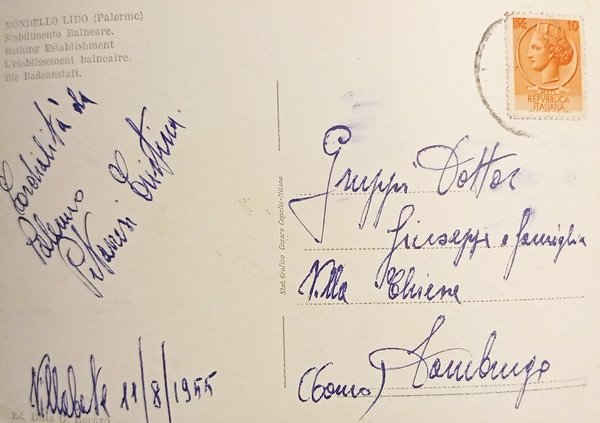 MONDELLO LIDO (Palermo)
Stabilimento Balneare.
Bathing Establishment
L'etablissement balneaire.
Die Badeanstalt.
Cordialità da
Palermo
Cristina
Villabate 11/8/1955
Stab. Grafico Cesare Capello - Milano
LIRE 10
POSTE
REPVBBLICA
ITALIANA
Gruppi Dottor
Giuseppe e famiglia
Villa Chiesa
(Como)
Ed. Ditta G.